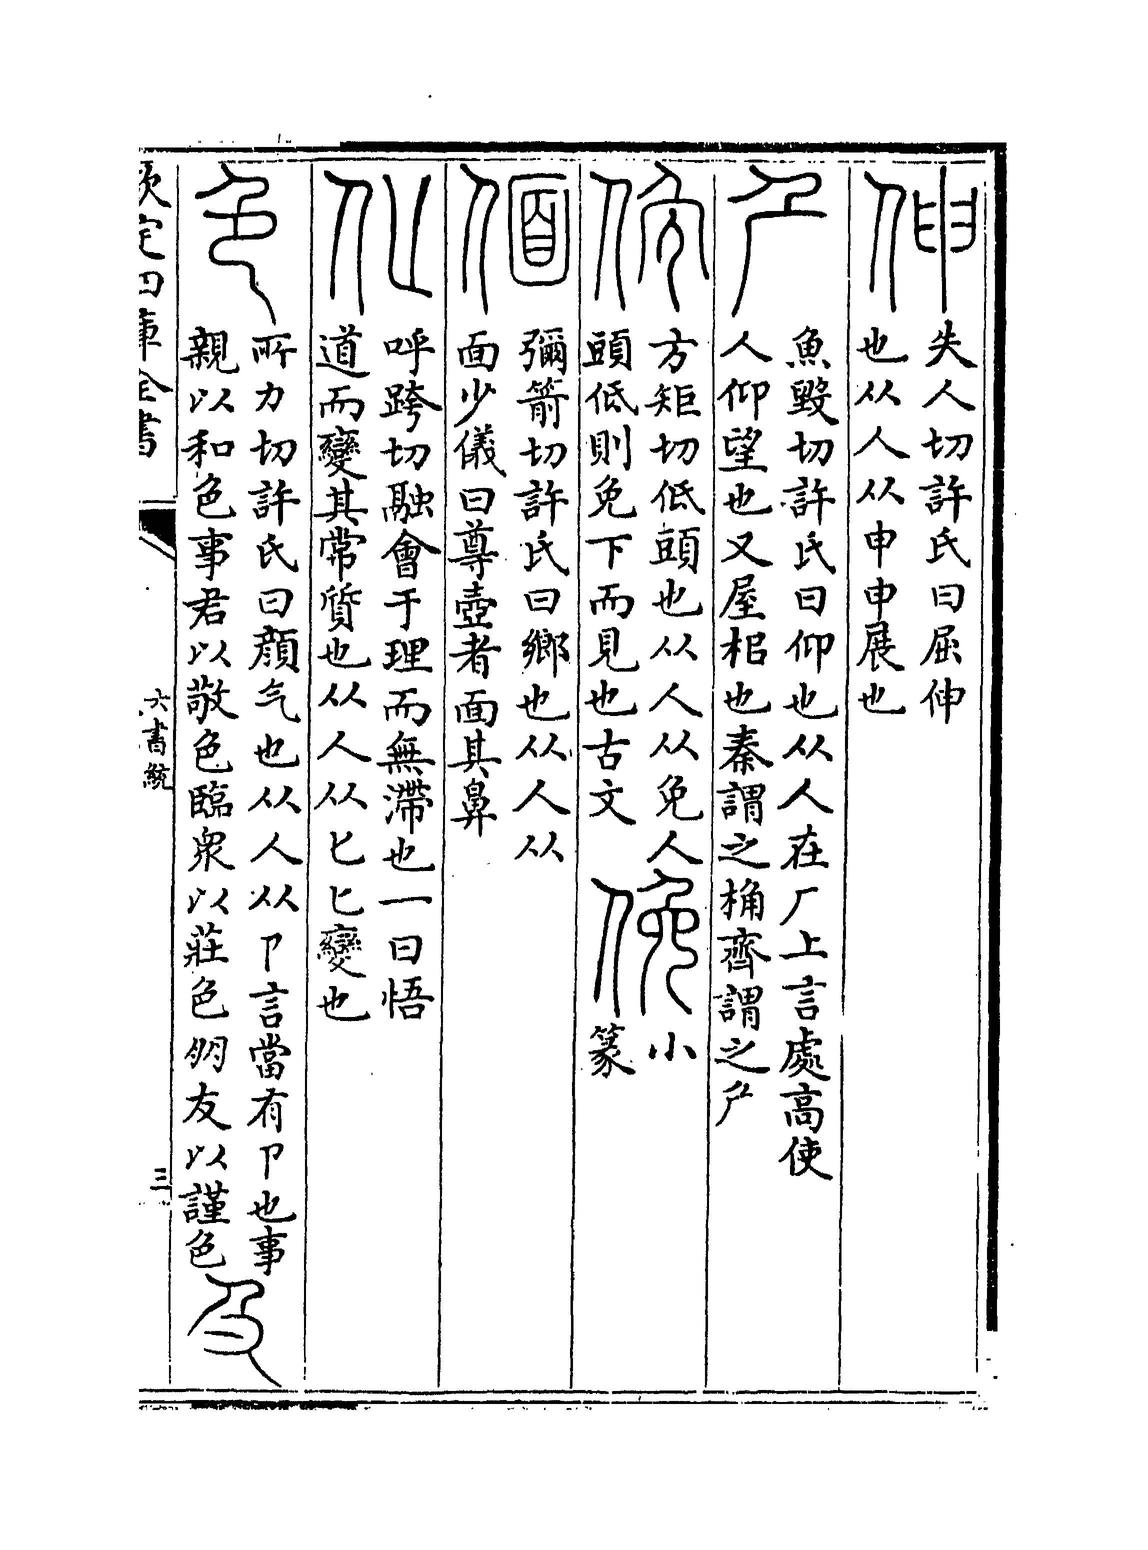 伸
失人切許氏曰屈伸
也从人从申申展也
魚毀切許氏曰仰也从人在厂上言處高使
人仰望也又屋梠也秦謂之桷齊謂之厃
方矩切低頭也从人从免人
頭低則免下而見也古文
俛
小
篆
偭
彌箭切許氏曰鄉也从人从
面少儀曰尊壺者面其鼻
化
呼跨切融會于理而無滯也一曰悟
道而變其常質也从人从匕匕變也
色
所力切許氏曰顔气也从人从卪言當有卪也事
親以和色事君以敬色臨衆以莊色朋友以謹色
欽定四庫全書
六書統
三